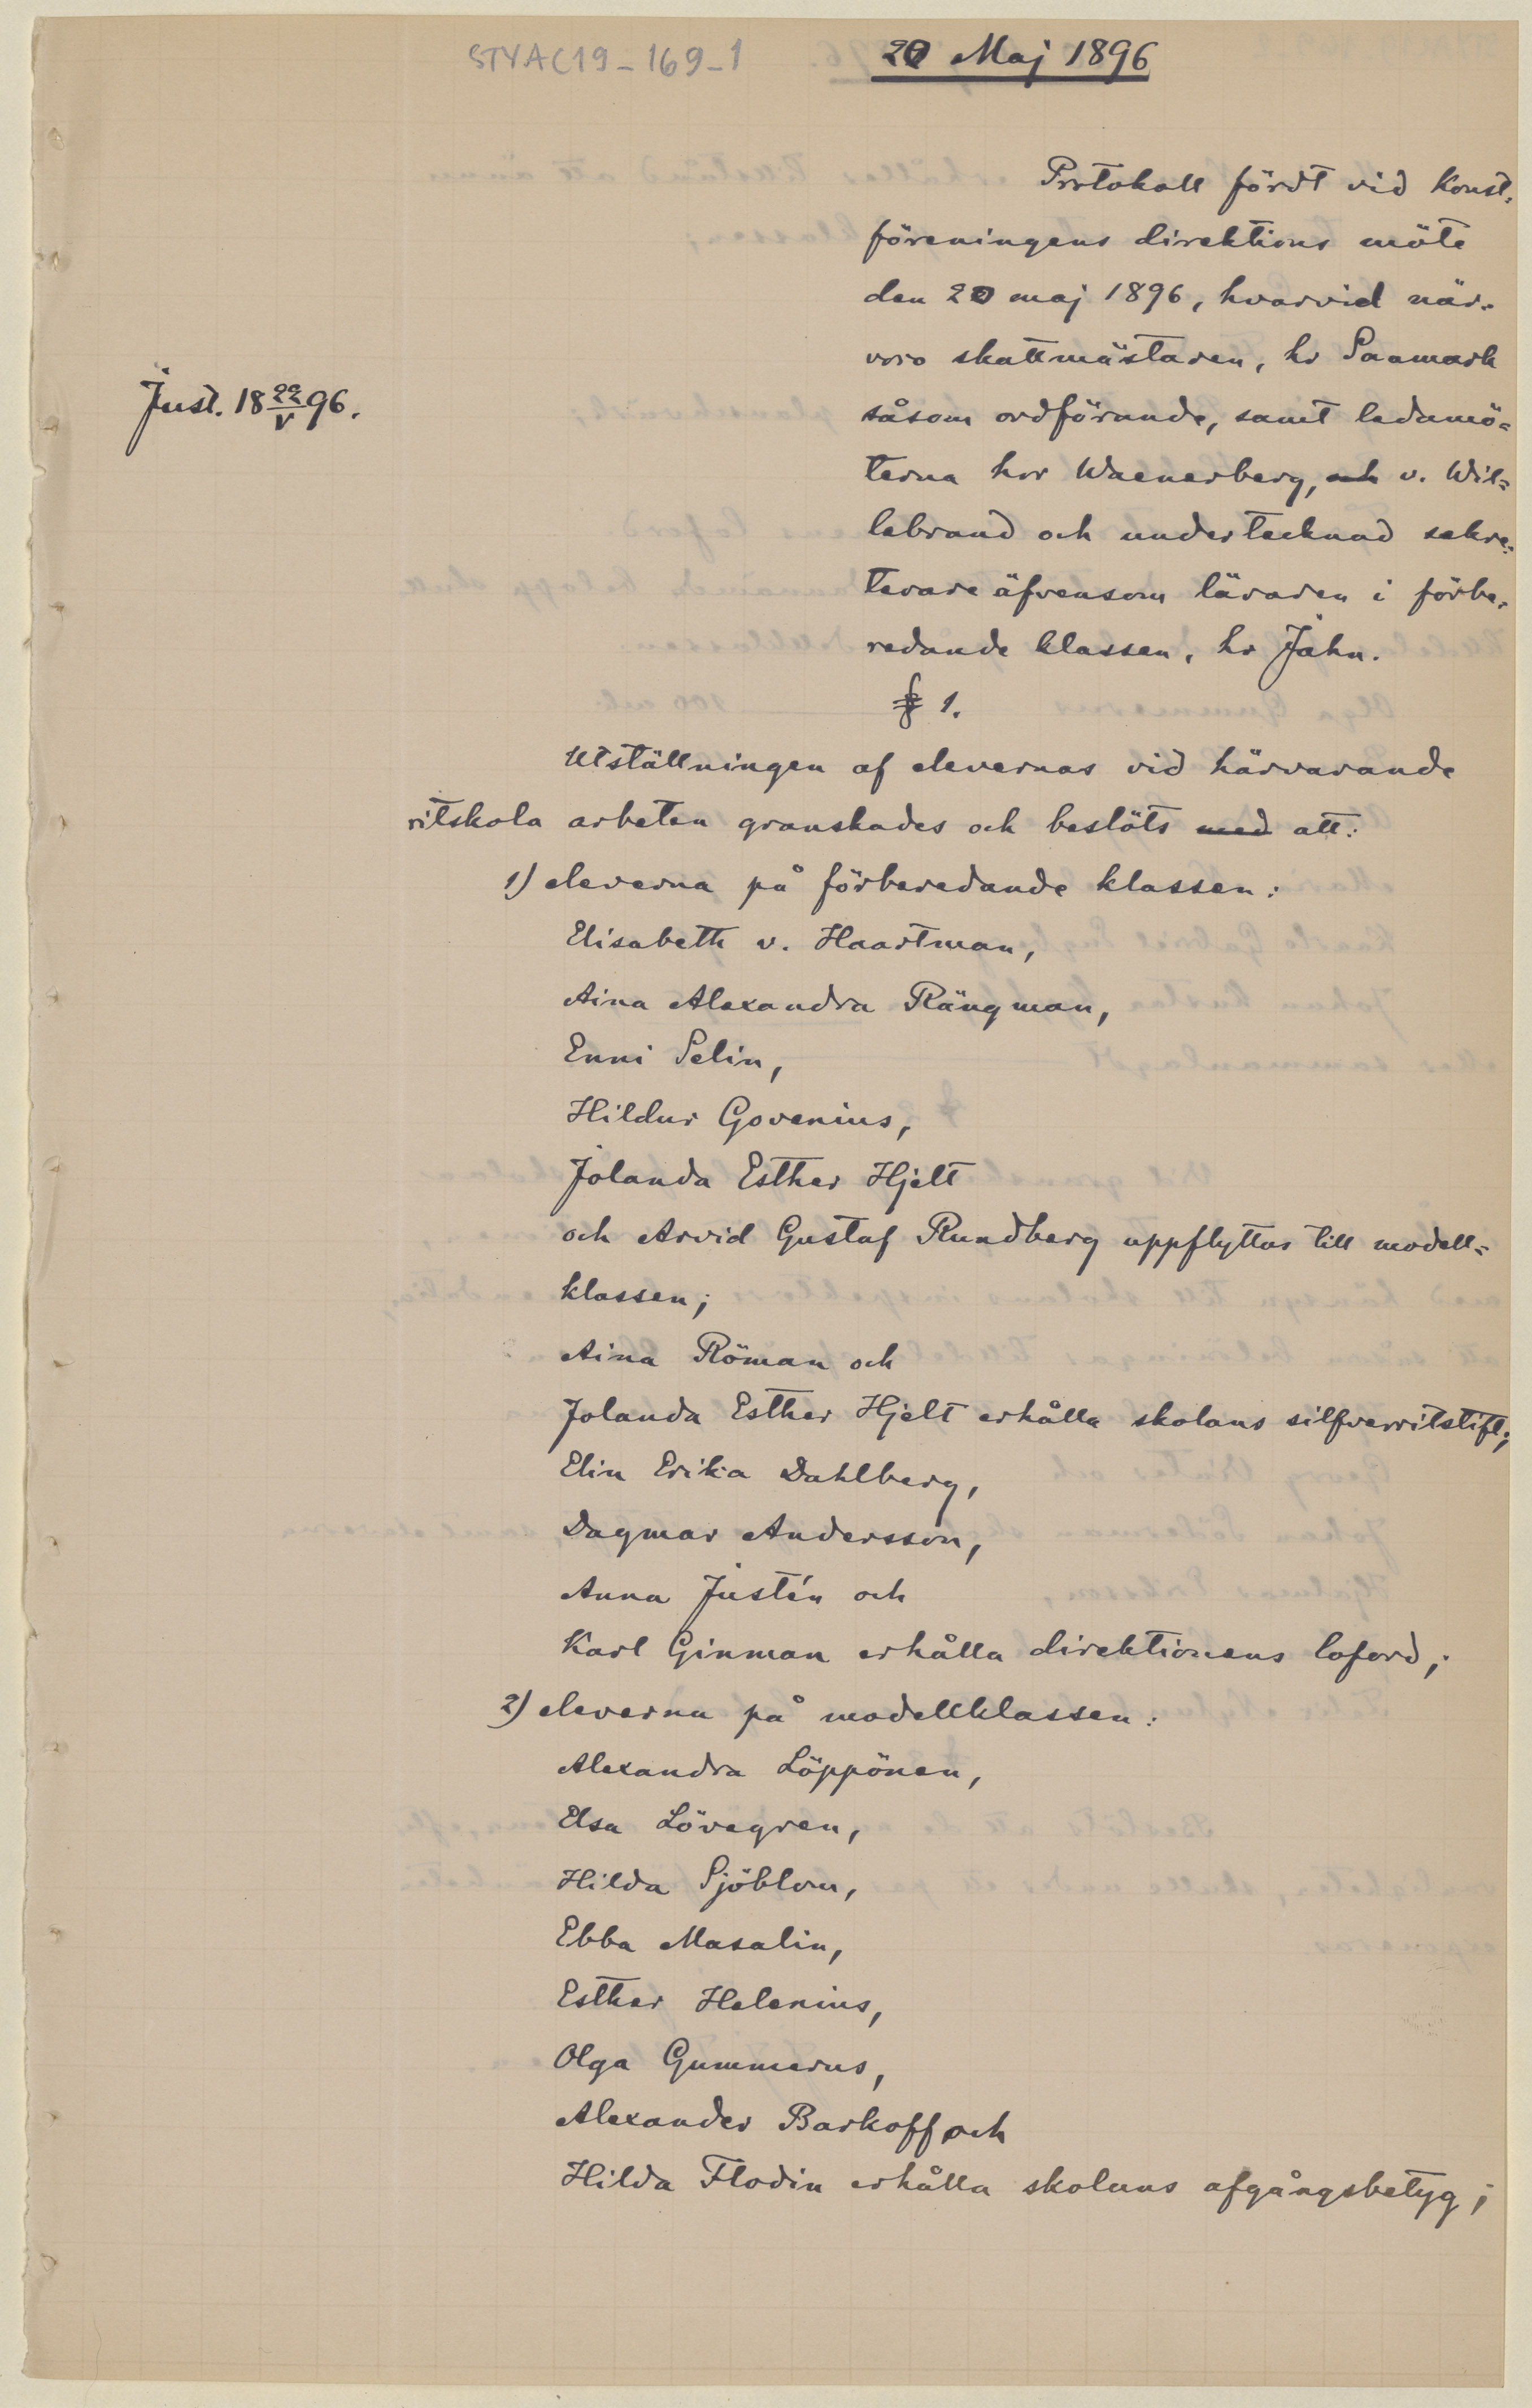 STYAC19-169-1
20 Maj 1896
Protokoll fördt vid Konst-
föreningens direktions möte
den 20 maj 1896, hvarvid när-
voro skattmästaren, hr Saamark
såsom ordförande, samt ledamö-
terna hrr Waenerberg, och v. Wil-
lebrand och undertecknad sekre-
terare äfvensom läraren i förbe-
redande klassen, hr Jahn.
Just. 18 22/V 96.
§ 1.
Utställningen af elevernas vid härvarande
ritskola arbeten granskades och beslöts med att:
1) eleverna på förberedande klassen:
Elisabeth v. Haartman,
Aina Alexandra Rängman,
Enni Selin,
Hildur Govenius,
Jolanda Esther Hjelt
och Arvid Gustaf Rundberg uppflyttas till modell-
klassen;
Aina Röman och
Jolanda Esther Hjelt erhålla skolans silfverritstift;
Elin Erika Dahlberg,
Dagmar Andersson,
Anna Justén och
Karl Ginman erhålla direktionens loford;
2) eleverna på modellklassen:
Alexandra Löppönen,
Elsa Lövegren,
Hilda Sjöblom,
Ebba Masalin,
Esther Helenius,
Olga Gummerus,
Alexander Barkoff och
Hilda Flodin erhålla skolans afgångsbetyg;